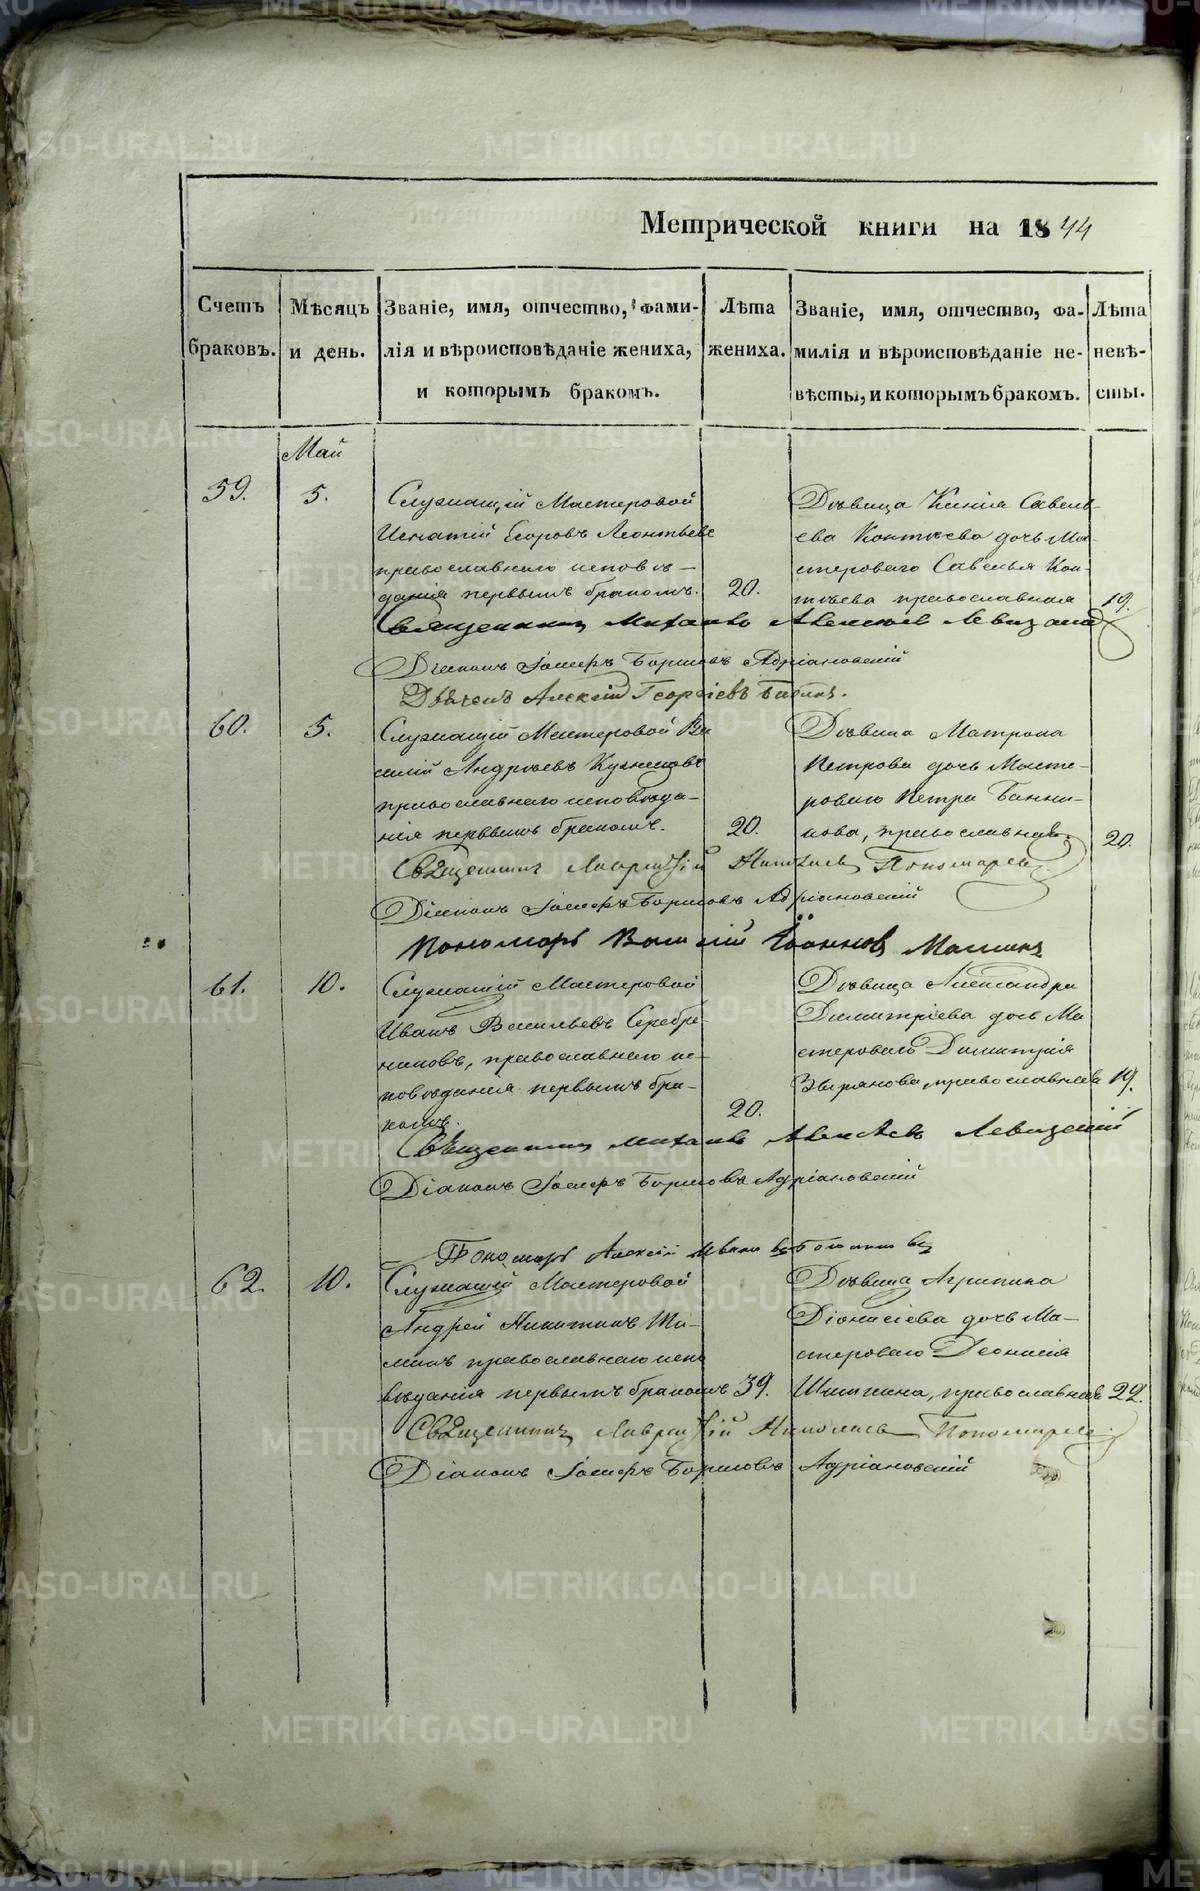 Метрической книги на 1844
Счетъ браковъ.
Мѣсяцъ и день.
Званіе, имя, отчество, фами-
лія и вѣроисповѣданіе жениха,
и которымъ бракомъ.
Лѣта жениха.
Званіе, имя, отчество, фа-
милія и вѣроисповѣданіе не-
вѣсты, и которымъ бракомъ.
Лѣта невѣ-
сты.
Май
59.
5.
Служащій Мастеровой
Игнатій Егоровъ Леонтьевъ
православнаго исповѣ-
данія первымъ бракомъ.
20.
Дѣвица Ксенія Савель-
ева Коктѣева дочь Ма-
стероваго Савелья Кок-
тѣева православная
19.
Священникъ Михаилъ Алексѣевъ
Діаконъ Іосифъ Борисовъ Адріановскій
Дьячекъ Алексій Георгіевъ Бабинъ.
60.
5.
Служащій Мастеровой Ва-
силій Андреевъ Кузнецовъ
православнаго исповѣда-
нія первымъ бракомъ.
20.
Дѣвица Матрона
Петрова дочь Масте-
роваго Петра Банни-
кова, православная.
20.
Священникъ Лаврентій Николаевъ Пономаревъ
Діаконъ Іосифъ Борисовъ Адріановскій
Пономарь Василій Іоанновъ
61.
10.
Служащій Мастеровой
Иванъ Васильевъ Серебре-
никовъ, православнаго ис-
повѣданія первымъ бра-
комъ.
20.
Дѣвица Александра
Димитріева дочь Ма
стероваго Димитрія
Зырянова, православная
19.
Священникъ Михаилъ Алексѣевъ Левицкій
Діаконъ Іосифъ Борисовъ Адріановскій
Пономарь Алексій
62.
10.
Служащій Мастеровой
Андрей Никитинъ
православнаго испо
вѣданія первымъ бракомъ
39.
Дѣвица Агрипина
Діонисіева дочь Ма-
стероваго Діонисія
Шишкина, православная
22.
Священникъ Лаврентій Николаевъ Пономаревъ
Діаконъ Іосифъ Борисовъ Адріановскій
METRIKI.GASO-URAL.RU